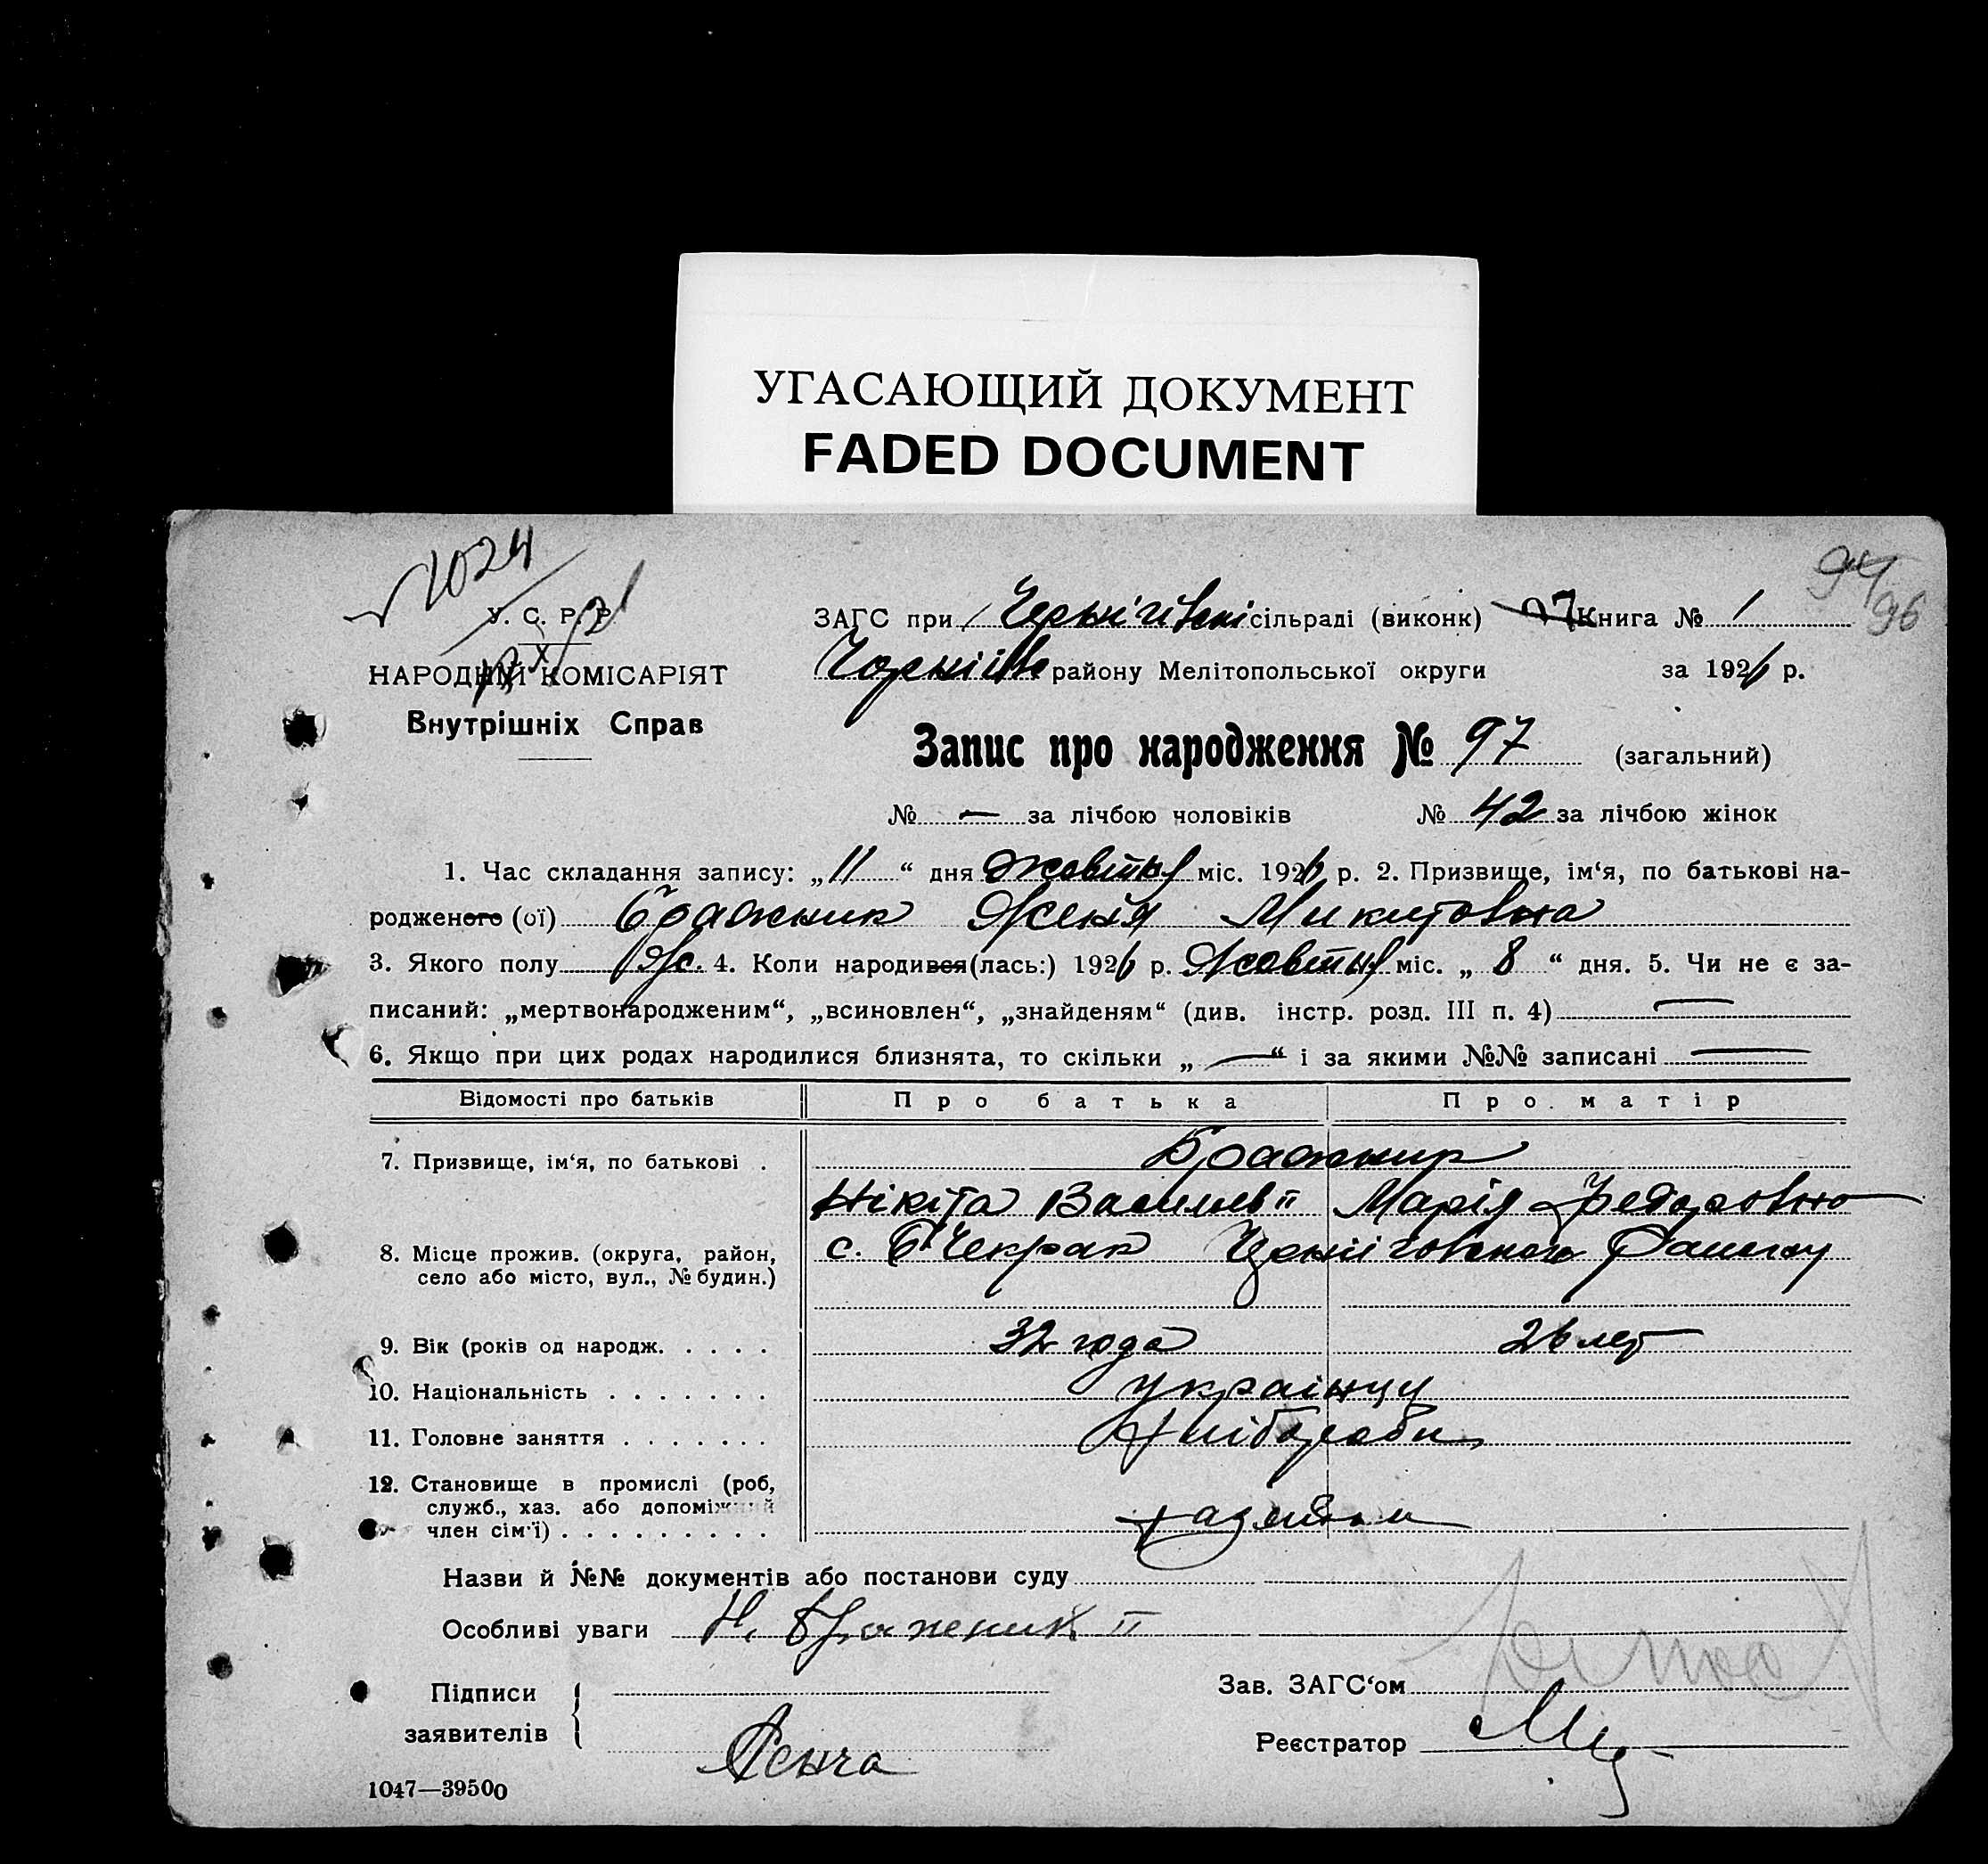 УГАСАЮЩИЙ ДОКУМЕНТ
FADED DOCUMENT
1024
94
96
У. С. Р. Р.
НАРОДНІЙ КОМІСАРІЯТ
Внутрішніх Справ
ЗАГС при Чернігівскі сільраді (виконк) 97 Книга № 1
району Мелітопольської округи за 1926 р.
Запис про народження № 97 (загальний)
№ — за лічбою чоловіків № 42 за лічбою жінок
1. Час складання запису: „11“ дня жовтня міс. 1926 р. 2. Призвище, ім‘я, по батькові на-
родженого (ої) Бражник Женя Микитовна
3. Якого полу ж. 4. Коли народився (лась:) 1926 р. Жовтня міс. „8“ дня. 5. Чи не є за-
писаний: „мертвонародженим“, „всиновлен“, „знайденям“ (див. інстр. розд. III п. 4) —
6. Якщо при цих родах народилися близнята, то скільки „—“ і за якими №№ записані —
Відомості про батьків Про батька Про матір
7. Призвище, ім‘я, по батькові . Бражник
Нікіта Васильев Марія Федоровно
8. Місце прожив. (округа, район, с. Б Чекрак Черніговского
село або місто, вул., № будин.)
9. Вік (років од народж. . . . . 32 года 26 лет
10. Національність . . . . . . . українци
11. Головне заняття . . . . . . . Хлібороби
12. Становище в промислі (роб,
служб., хаз. або допоміжний
член сім‘ї) . . . . . . . . .
Назви й №№ документів або постанови суду
Особливі уваги Н. Браженик II
Підписи
заявителів
Зав. ЗАГС‘ом
Реєстратор
1047—39500